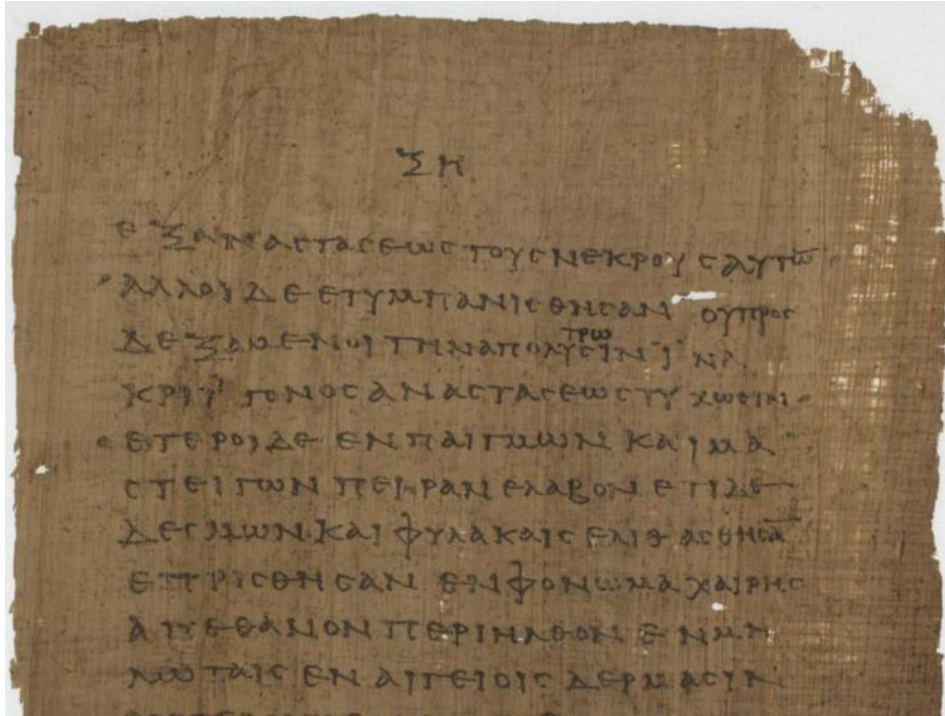 ΞΗ
ΕΞΑΝΑCΤΑCΕΩCΤΟΥCΝΕΚΡΟΥCΑΥΤΩ̅
ΑΛΛΟΙΔΕΕΤΥΜΠΑΝΙCΘΗCΑΝ ΟΥΠΡΟC
ΤΡΩ
ΔΕΞΑΜΕΝΟΙΤΗΝΑΠΟΛΥCΙΝ ΪΝΑ
ΚΡΙΤΤΟΝΟCΑΝΑCΤΑCΕΩCΤΥΧΩCΙΝ
ΕΤΕΡΟΙΔΕ ΕΝΠΑΙΓΜΩΝ ΚΑΙΜΑ
CΤΕΙΓΩΝ ΠΕΙΡΑΝ ΕΛΑΒΟΝ ΕΤΙΔΕ
ΔΕCΜΩΝ ΚΑΙ ΦΥΛΑΚΑΙC ΕΛΙΘΑCΘΗCΑ̅
ΕΠΡΙCΘΗCΑΝ ΕΝΦΟΝΩΜΑΧΑΙΡΗC
ΑΠΕΘΑΝΟΝ ΠΕΡΙΗΛΘΟΝ ΕΝΜΗ
ΛΩΤΑΙC ΕΝ ΑΙΓΕΙΟΙC ΔΕΡΜΑCΙΝ